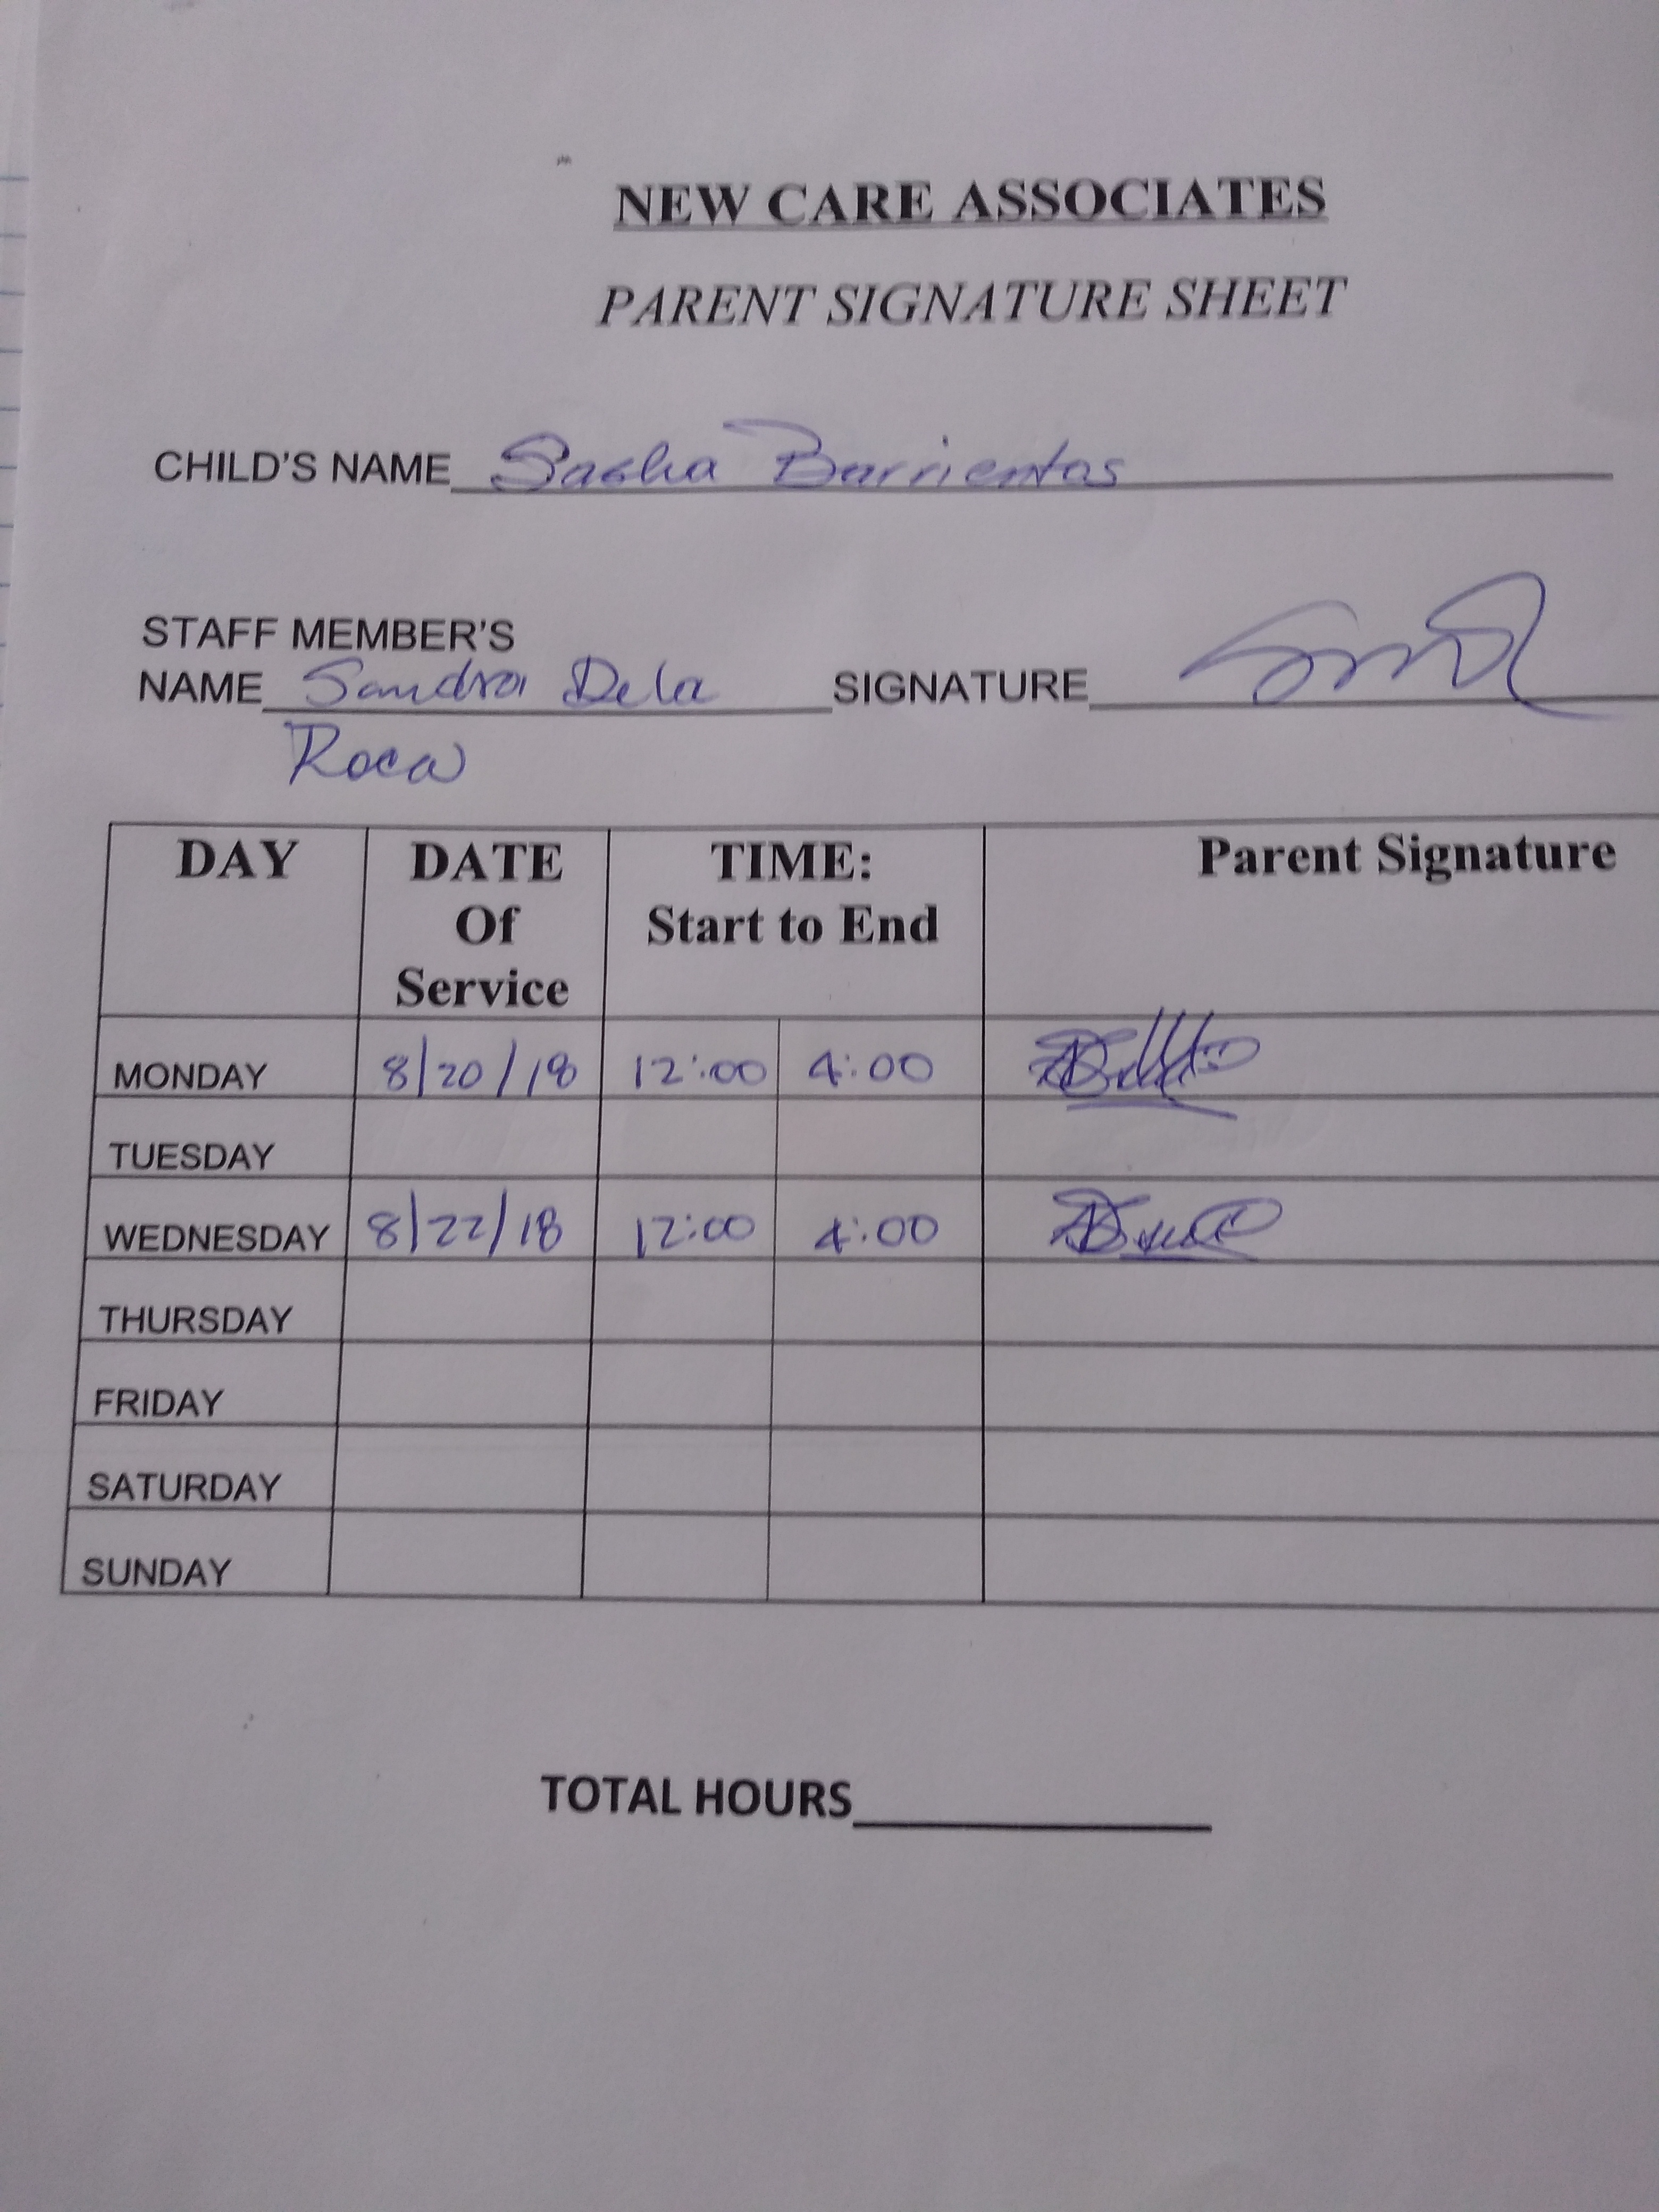 NEW CARE ASSOCIATES
PARENT SIGNATURE SHEET
CHILD'S NAME Sasha Barrientos
STAFF MEMBER'S
NAME Sandra Dela SIGNATURE
Roca
DAY DATE Of Service TIME: Start to End Parent Signature
MONDAY 8/20/18 12:00 4:00
TUESDAY
WEDNESDAY 8/22/18 12:00 4:00
THURSDAY
FRIDAY
SATURDAY
SUNDAY
TOTAL HOURS